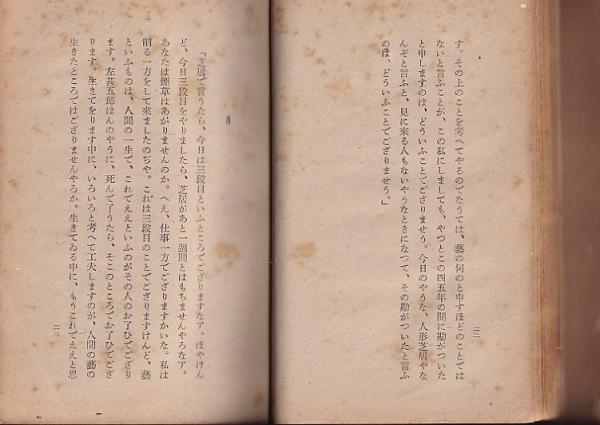 す。その上のことを考へてやるのでなうては、藝の何のと申すほどのことでは
ないと言ふことが、この私にしましても、やつとこの四五年の間に勘がついた
と申しますのは、どういふことでござりませう。今日のやうな、人形芝居やな
んぞと言ふと、見に來る人もないやうなときになつて、その勘がついたと言ふ
のは、どういふことでござりませう。」
二二
「芝居で言うたら、今日は三段目といふところでござりますなア。ほやけん
ど、今日三段目をやりましたら、芝居があと一週間とはもちませんやろなア。
あなたは煙草はあがりませんのか。へえ、仕事一方でござりますかいな。私は
削る一方をして來ましたのぢや。これは三段目のことでござりますけんど、藝
といふものは、人間の一生で、これでええといふのがその人のお了ひでござり
ます。左甚五郎はんのやうに、死んで了うたら、そこのところでお了ひでござ
ります。生きてをります中に、いろいろと考へて工夫しますのが、人間の藝の
生きたところではござりませんやろか。生きてゐる中に、もうこれでええと思